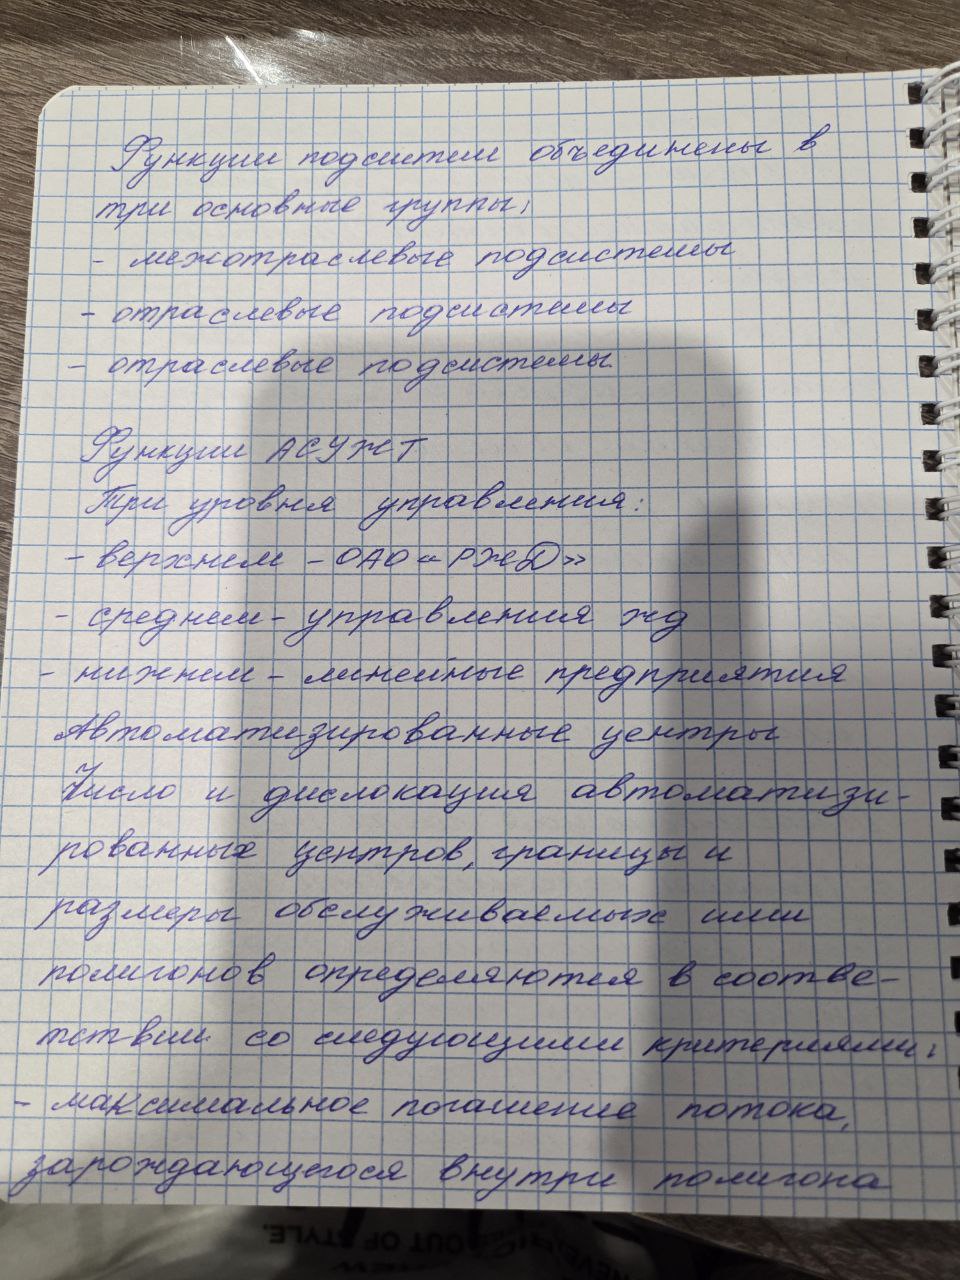 Функции подсистем объединены в
три основные группы;
- межотраслевые подсистемы
- отраслевые подсистемы
- отраслевые подсистемы
Функции АСУЖТ
Три уровня управления:
- верхнем - ОАО «РЖД»
- среднем - управления жд
- нижнем - линейные предприятия
Автоматизированные центры
Число и дислокация автоматизи-
рованных центров, границы и
размеры обслуживаемых ими
полигонов определяются в соотве-
тствии со следующими критериями:
- максимальное погашение потока,
зарождающегося внутри полигона
OUT OF STYLE.